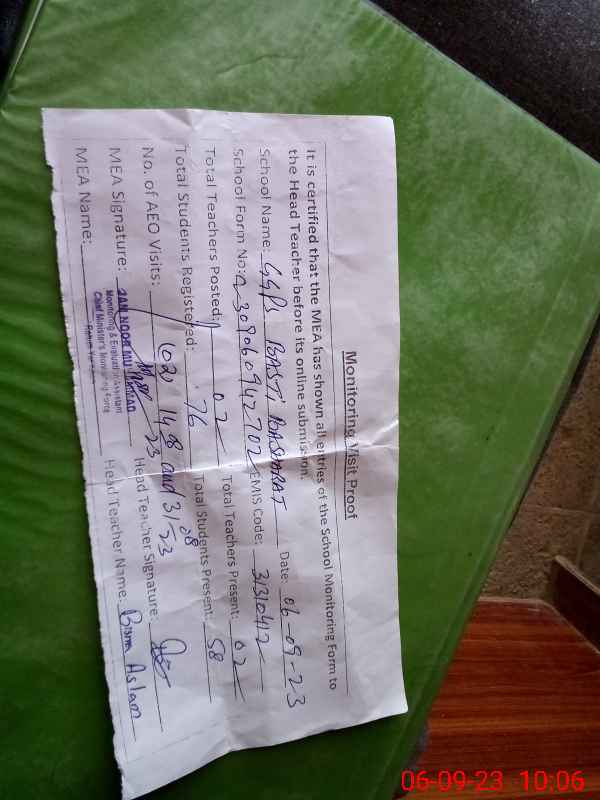 Monitoring Visit Proof
It is certified that the MEA has shown all entries of the School Monitoring Form to
the Head Teacher before its online submission.
School Name: GGPS BASTI BASHARAT Date: 06-09-23
School Form No: 2309060942702 EMIS Code: 31310412
Total Teachers Posted: 02 Total Teachers Present: 02
Total Students Registered: 76 Total Students Present: 58
No. of AEO Visits: (02) 14-08 and 31-08-23
MEA Signature: Head Teacher Signature:
JAN NOOR MUHAMMAD
Monitoring & Evaluation Assistant
Chief Minister's Monitoring Force
MEA Name: Head Teacher Name: Bism Aslam
06-09-23 10:06